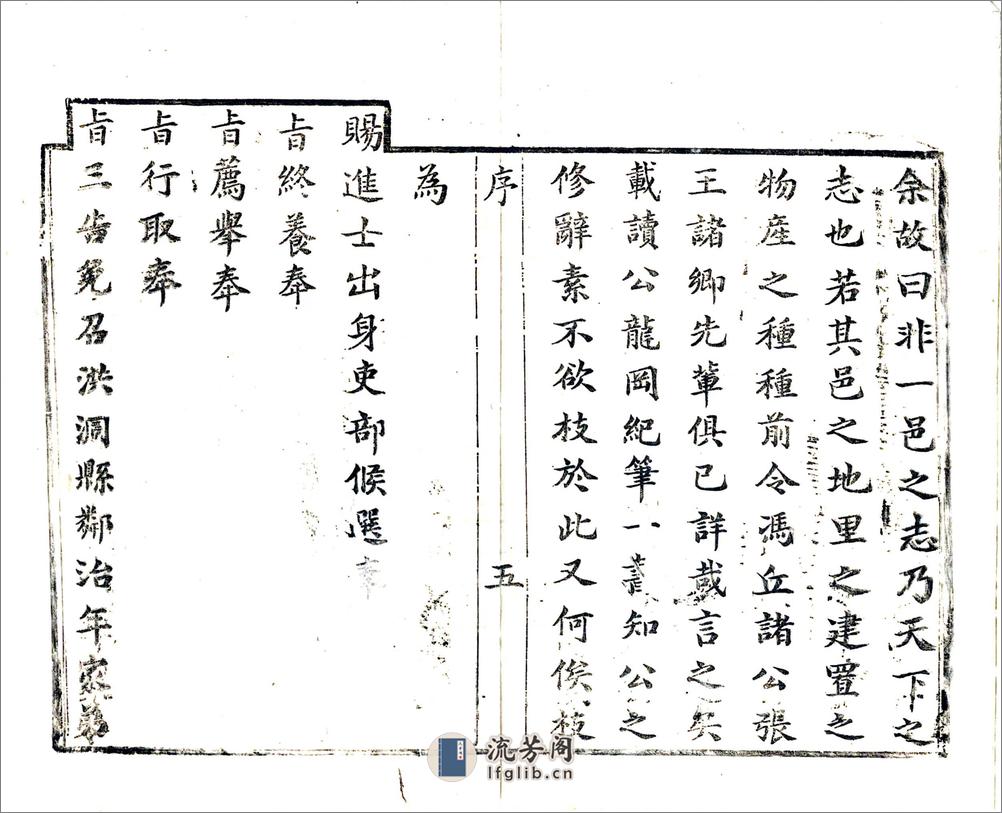 余故曰非一邑之志乃天下之
志也若其邑之地里之建置之
物産之種種前令馮丘諸公張
王諸卿先輩俱已詳載言之矣
載讀公龍岡紀筆一書知公之
修辭素不欲枝於此又何俟枝
序 五
為
賜進士出身吏部候選奉
旨終養奉
旨薦舉奉
旨行取奉
旨三告免召洪洞縣鄰治年家弟
流芳阁
lfglib.cn